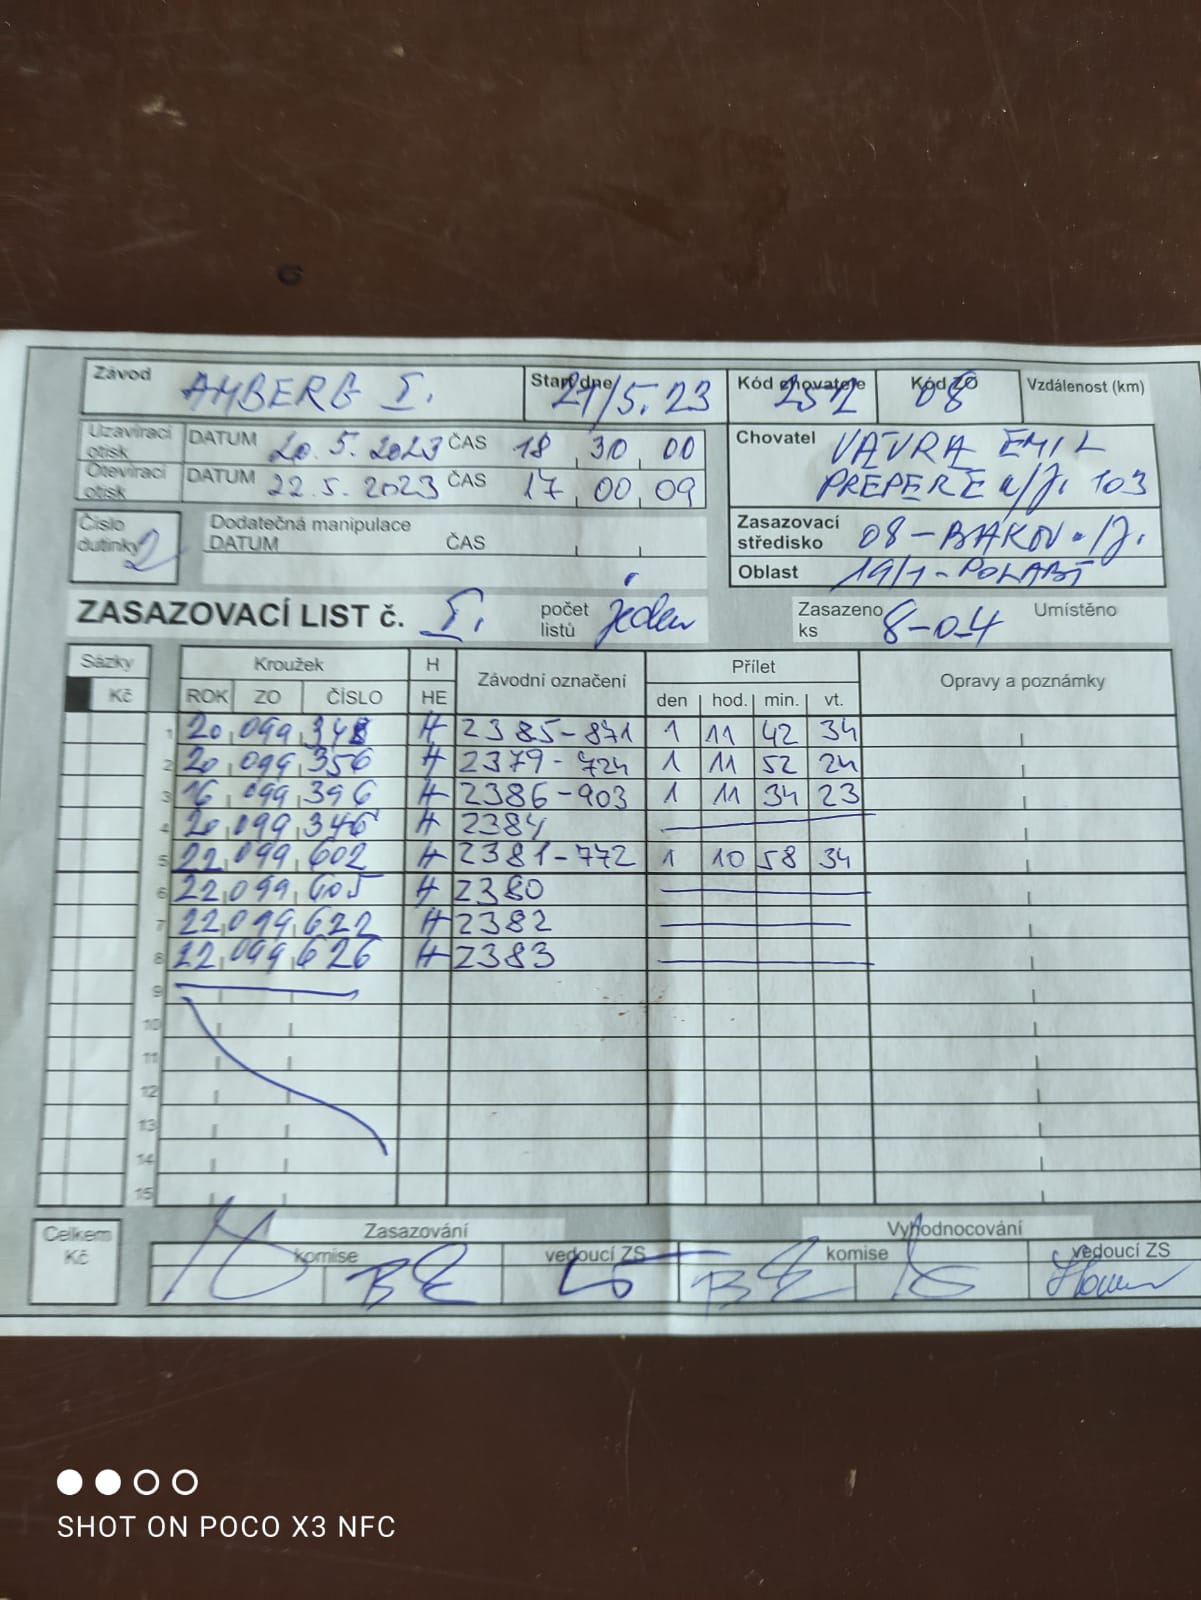 Závod AMBERG I. Start dne 21/5.23 Kód chovatele Kód ZO 08 Vzdálenost (km)
Uzavírací otisk DATUM 20.5.2023 ČAS 18 30 00
Otevírací otisk DATUM 22.5.2023 ČAS 17 00 09
Chovatel VÁVRA EMIL
PŘEPEŘE n/J. 103
Číslo dutinky 2 Dodatečná manipulace
DATUM ČAS
Zasazovací středisko 08-BAKOV n./J.
Oblast 19/1-POLABÍ
ZASAZOVACÍ LIST č. I. počet listů jeden Zasazeno ks 8-0-4 Umístěno
Sázky Kroužek H Závodní označení Přílet Opravy a poznámky
Kč ROK ZO ČÍSLO HE den hod. min. vt.
1 20 099 348 H 2385-871 1 11 42 34
2 20 099 356 H 2379-724 1 11 52 24
3 16 099 396 H 2386-903 1 11 34 23
4 20 099 346 H 2384
5 22 099 602 H 2381-772 1 10 58 34
6 22 099 605 H 2380
7 22 099 622 H 2382
8 22 099 626 H 2383
9
10
11
12
13
14
15
Celkem Kč Zasazování Vyhodnocování
komise vedoucí ZS komise vedoucí ZS
SHOT ON POCO X3 NFC